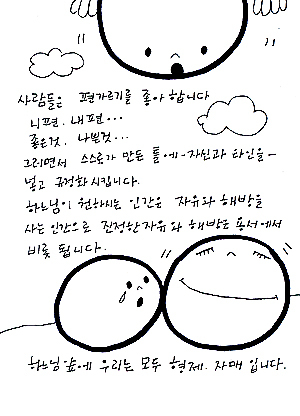 사람들은 편가르기를 좋아 합니다
니편. 내편...
좋은것. 나쁜것...
그러면서 스스로가 만든 틀에-자신과 타인을-
넣고 규정화 시킵니다.
하느님이 원하시는 인간은 자유와 해방을
사는 인간으로 진정한 자유와 해방은 용서에서
비롯 됩니다.
하느님 앞에 우리는 모두 형제. 자매 입니다.